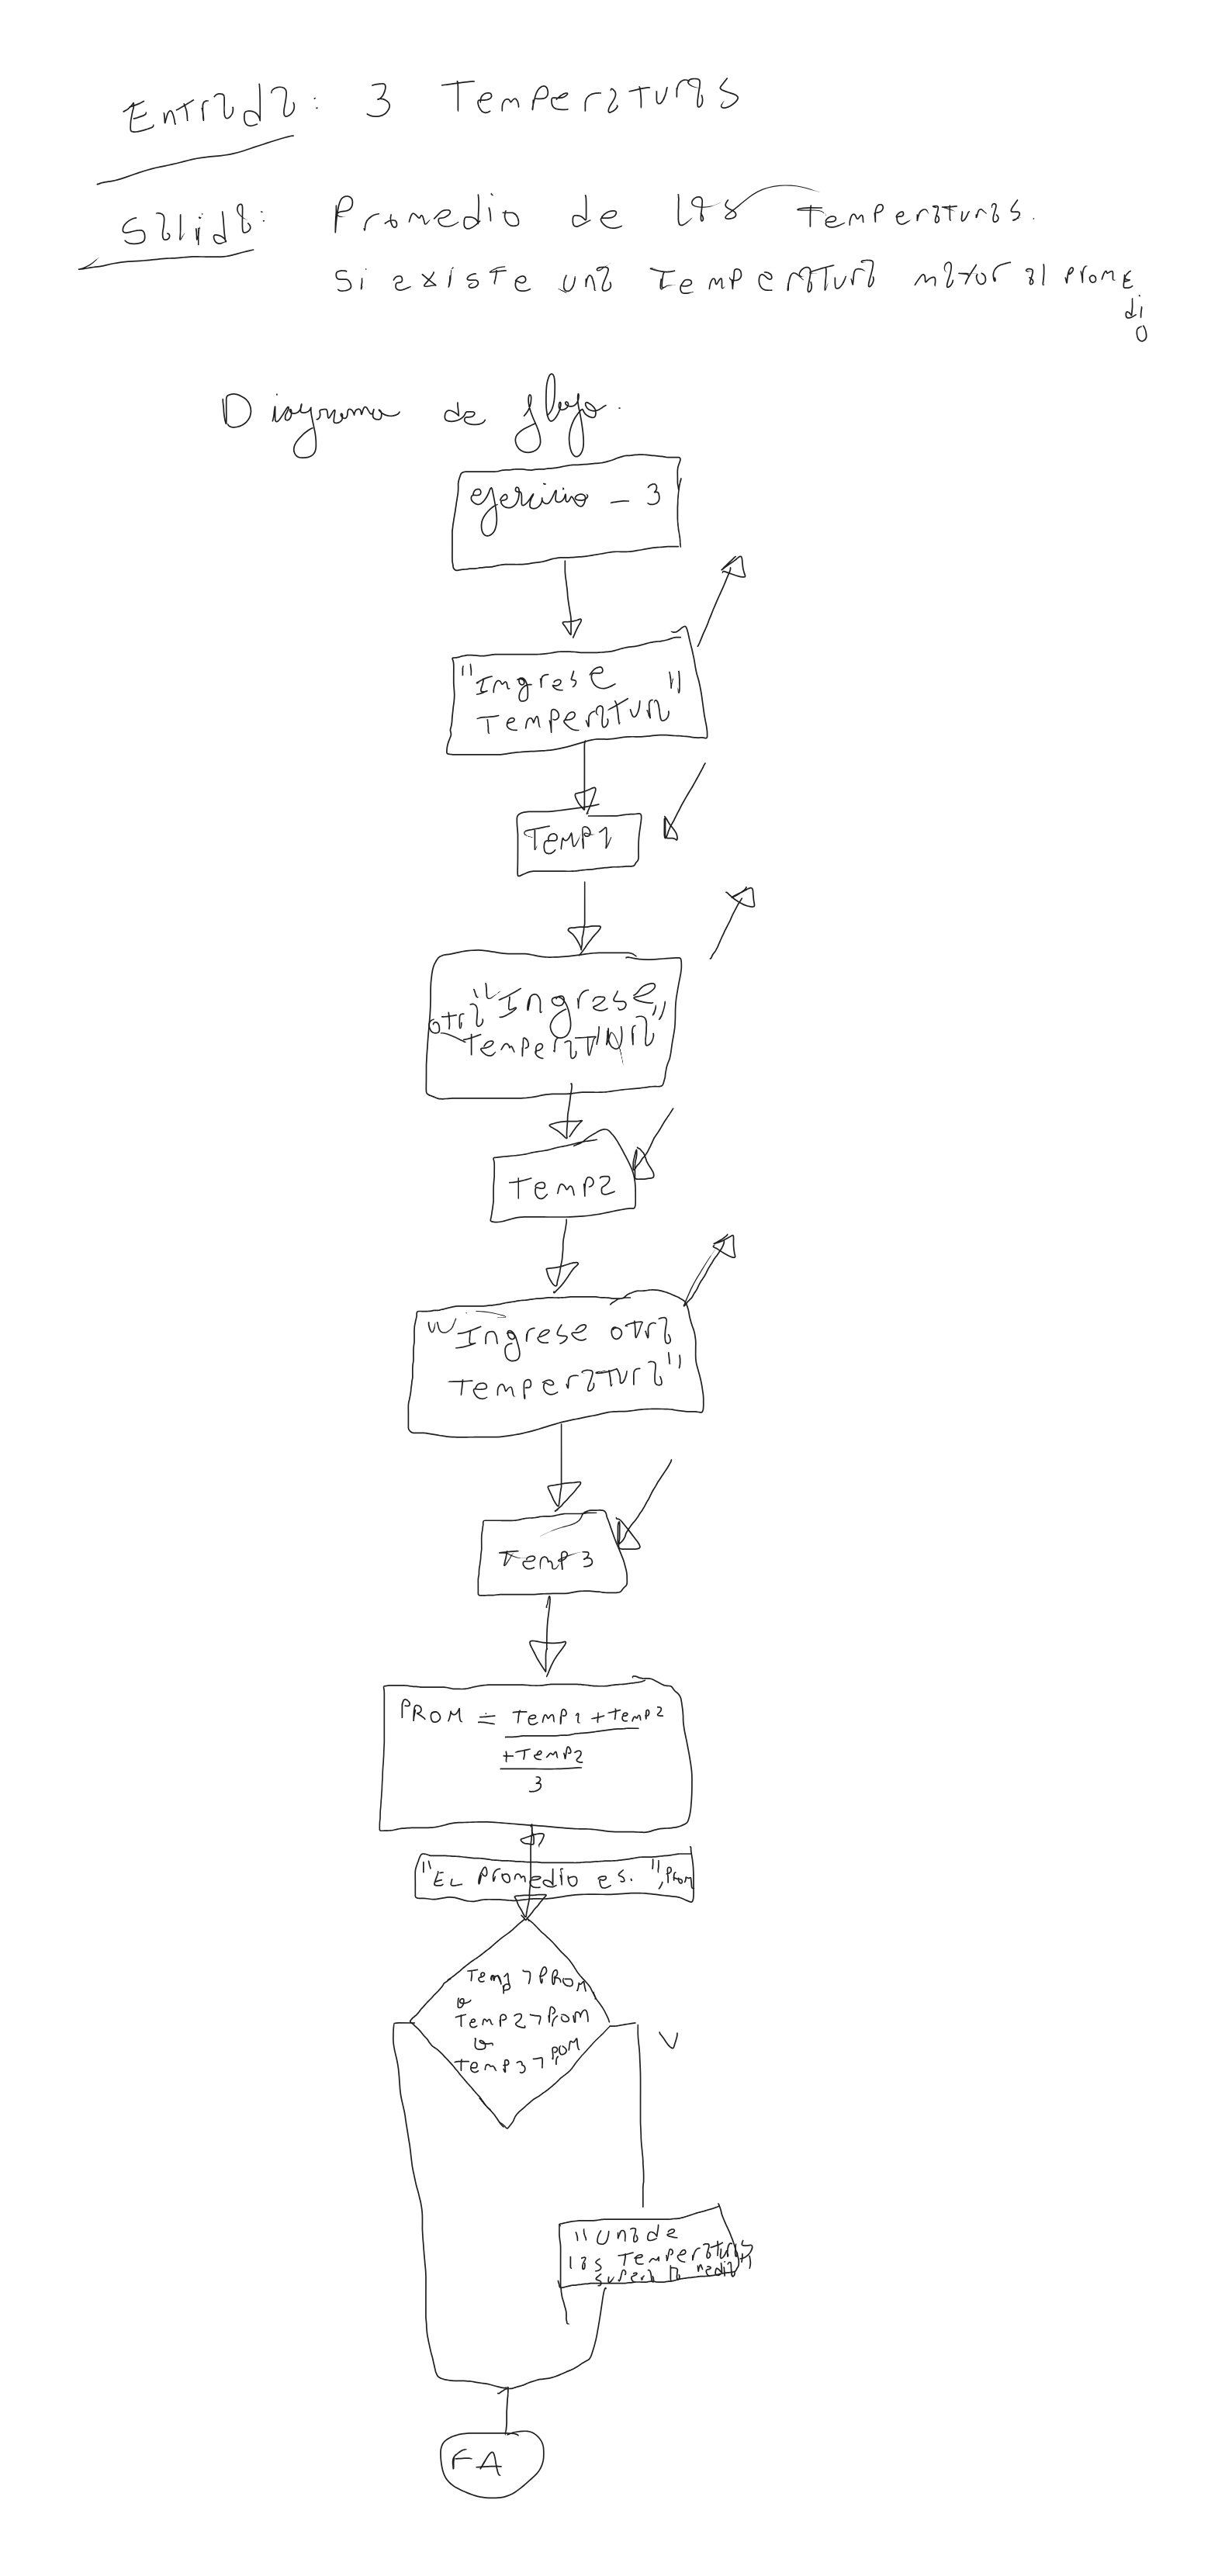 Entrada: 3 Temperaturas
Salida: Promedio de las Temperaturas.
Si existe una Temperatura mayor al prome
di
o
Diagrama de flujo.
ejercicio - 3
"Ingrese
Temperatura"
Temp1
"Ingrese
otra
Temperatura"
Temp2
"Ingrese otra
Temperatura"
Temp3
PROM = Temp1 + Temp2
+Temp2
3
"EL promedio es. ", Prom
Temp1 > PROM
o
Temp2 > Prom
o
Temp3 > PROM
V
"una de
las Temperaturas
supera la media"
FA